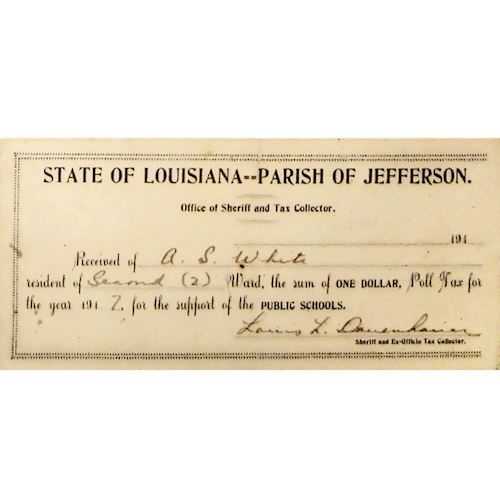 STATE OF LOUISIANA--PARISH OF JEFFERSON.
Office of Sheriff and Tax Collector.
191
Received of A. S. White
resident of Second (2) Ward, the sum of ONE DOLLAR, Poll Tax for
the year 191 7, for the support of the PUBLIC SCHOOLS.
Louis L.
Sheriff and Ex-Officio Tax Collector.